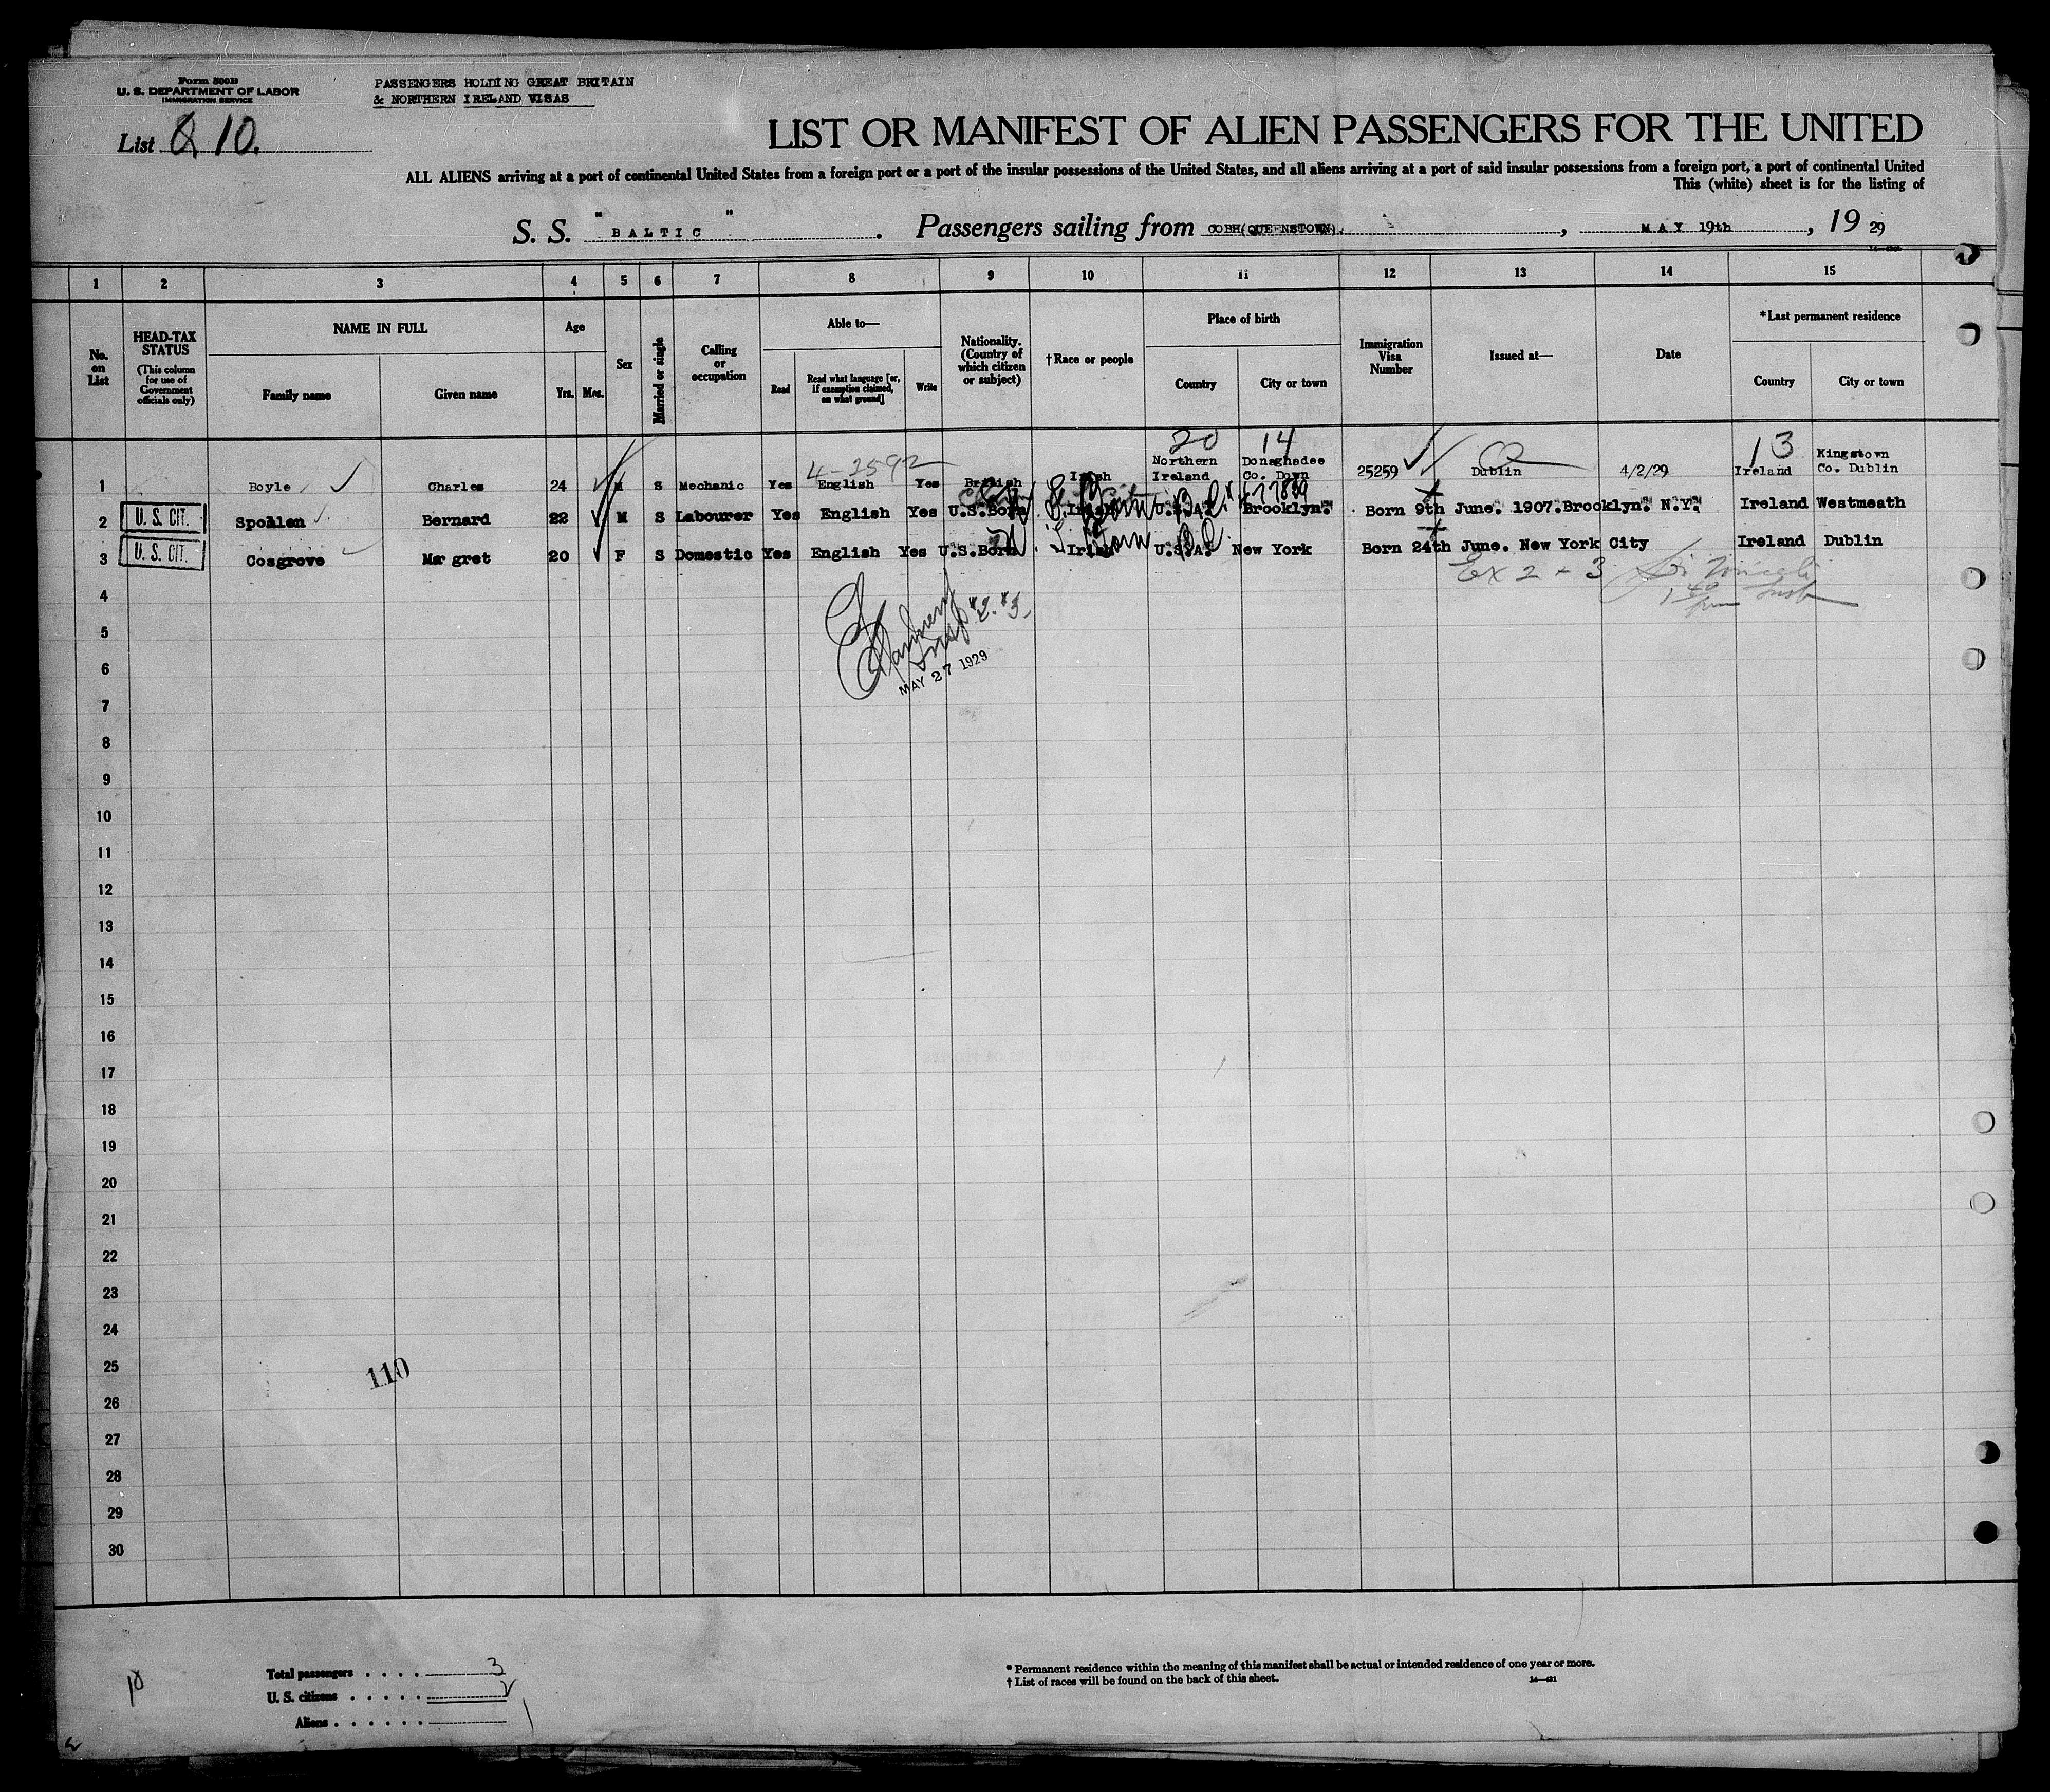 Form 500B
U. S. DEPARTMENT OF LABOR
IMMIGRATION SERVICE
PASSENGERS HOLDING GREAT BRITAIN
& NORTHERN IRELAND VISAS
List 10.
LIST OR MANIFEST OF ALIEN PASSENGERS FOR THE UNITED
ALL ALIENS arriving at a port of continental United States from a foreign port or a port of the insular possessions of the United States, and all aliens arriving at a port of said insular possessions from a foreign port, a port of continental United
This (white) sheet is for the listing of
S. S. "BALTIC". Passengers sailing from COBH(QUEENSTOWN)., MAY 19th, 1929
1 2 3 4 5 6 7 8 9 10 11 12 13 14 15
No. on List
HEAD-TAX STATUS
(This column for use of Government officials only)
NAME IN FULL
Family name Given name
Age
Yrs. Mos.
Sex
Married or single
Calling or occupation
Able to—
Read
Read what language [or, if exemption claimed, on what ground]
Write
Nationality. (Country of which citizen or subject)
†Race or people
Place of birth
Country City or town
Immigration Visa Number
Issued at—
Date
*Last permanent residence
Country City or town
4-2592 20 14 13
1 Boyle, Charles 24 M S Mechanic Yes English Yes British Irish Northern Ireland Donaghadee Co. Down 25259 Dublin 4/2/29 Ireland Kingstown Co. Dublin
2 U. S. CIT. Spollen Bernard 22 M S Labourer Yes English Yes U.S.Born Irish U.S.A. Brooklyn. Born 9th June. 1907.Brooklyn. N.Y. Ireland Westmeath
3 U. S. CIT. Cosgrove Margret 20 F S Domestic Yes English Yes U.S.Born. Irish U.S.A. New York Born 24th June. New York City Ireland Dublin
Ex 2 - 3
4
5
6
MAY 27 1929
7
8
9
10
11
12
13
14
15
16
17
18
19
20
21
22
23
24
25
110
26
27
28
29
30
10
Total passengers . . . . 3
U. S. citizens . . . . .
Aliens . . . . . .
* Permanent residence within the meaning of this manifest shall be actual or intended residence of one year or more.
† List of races will be found on the back of this sheet.